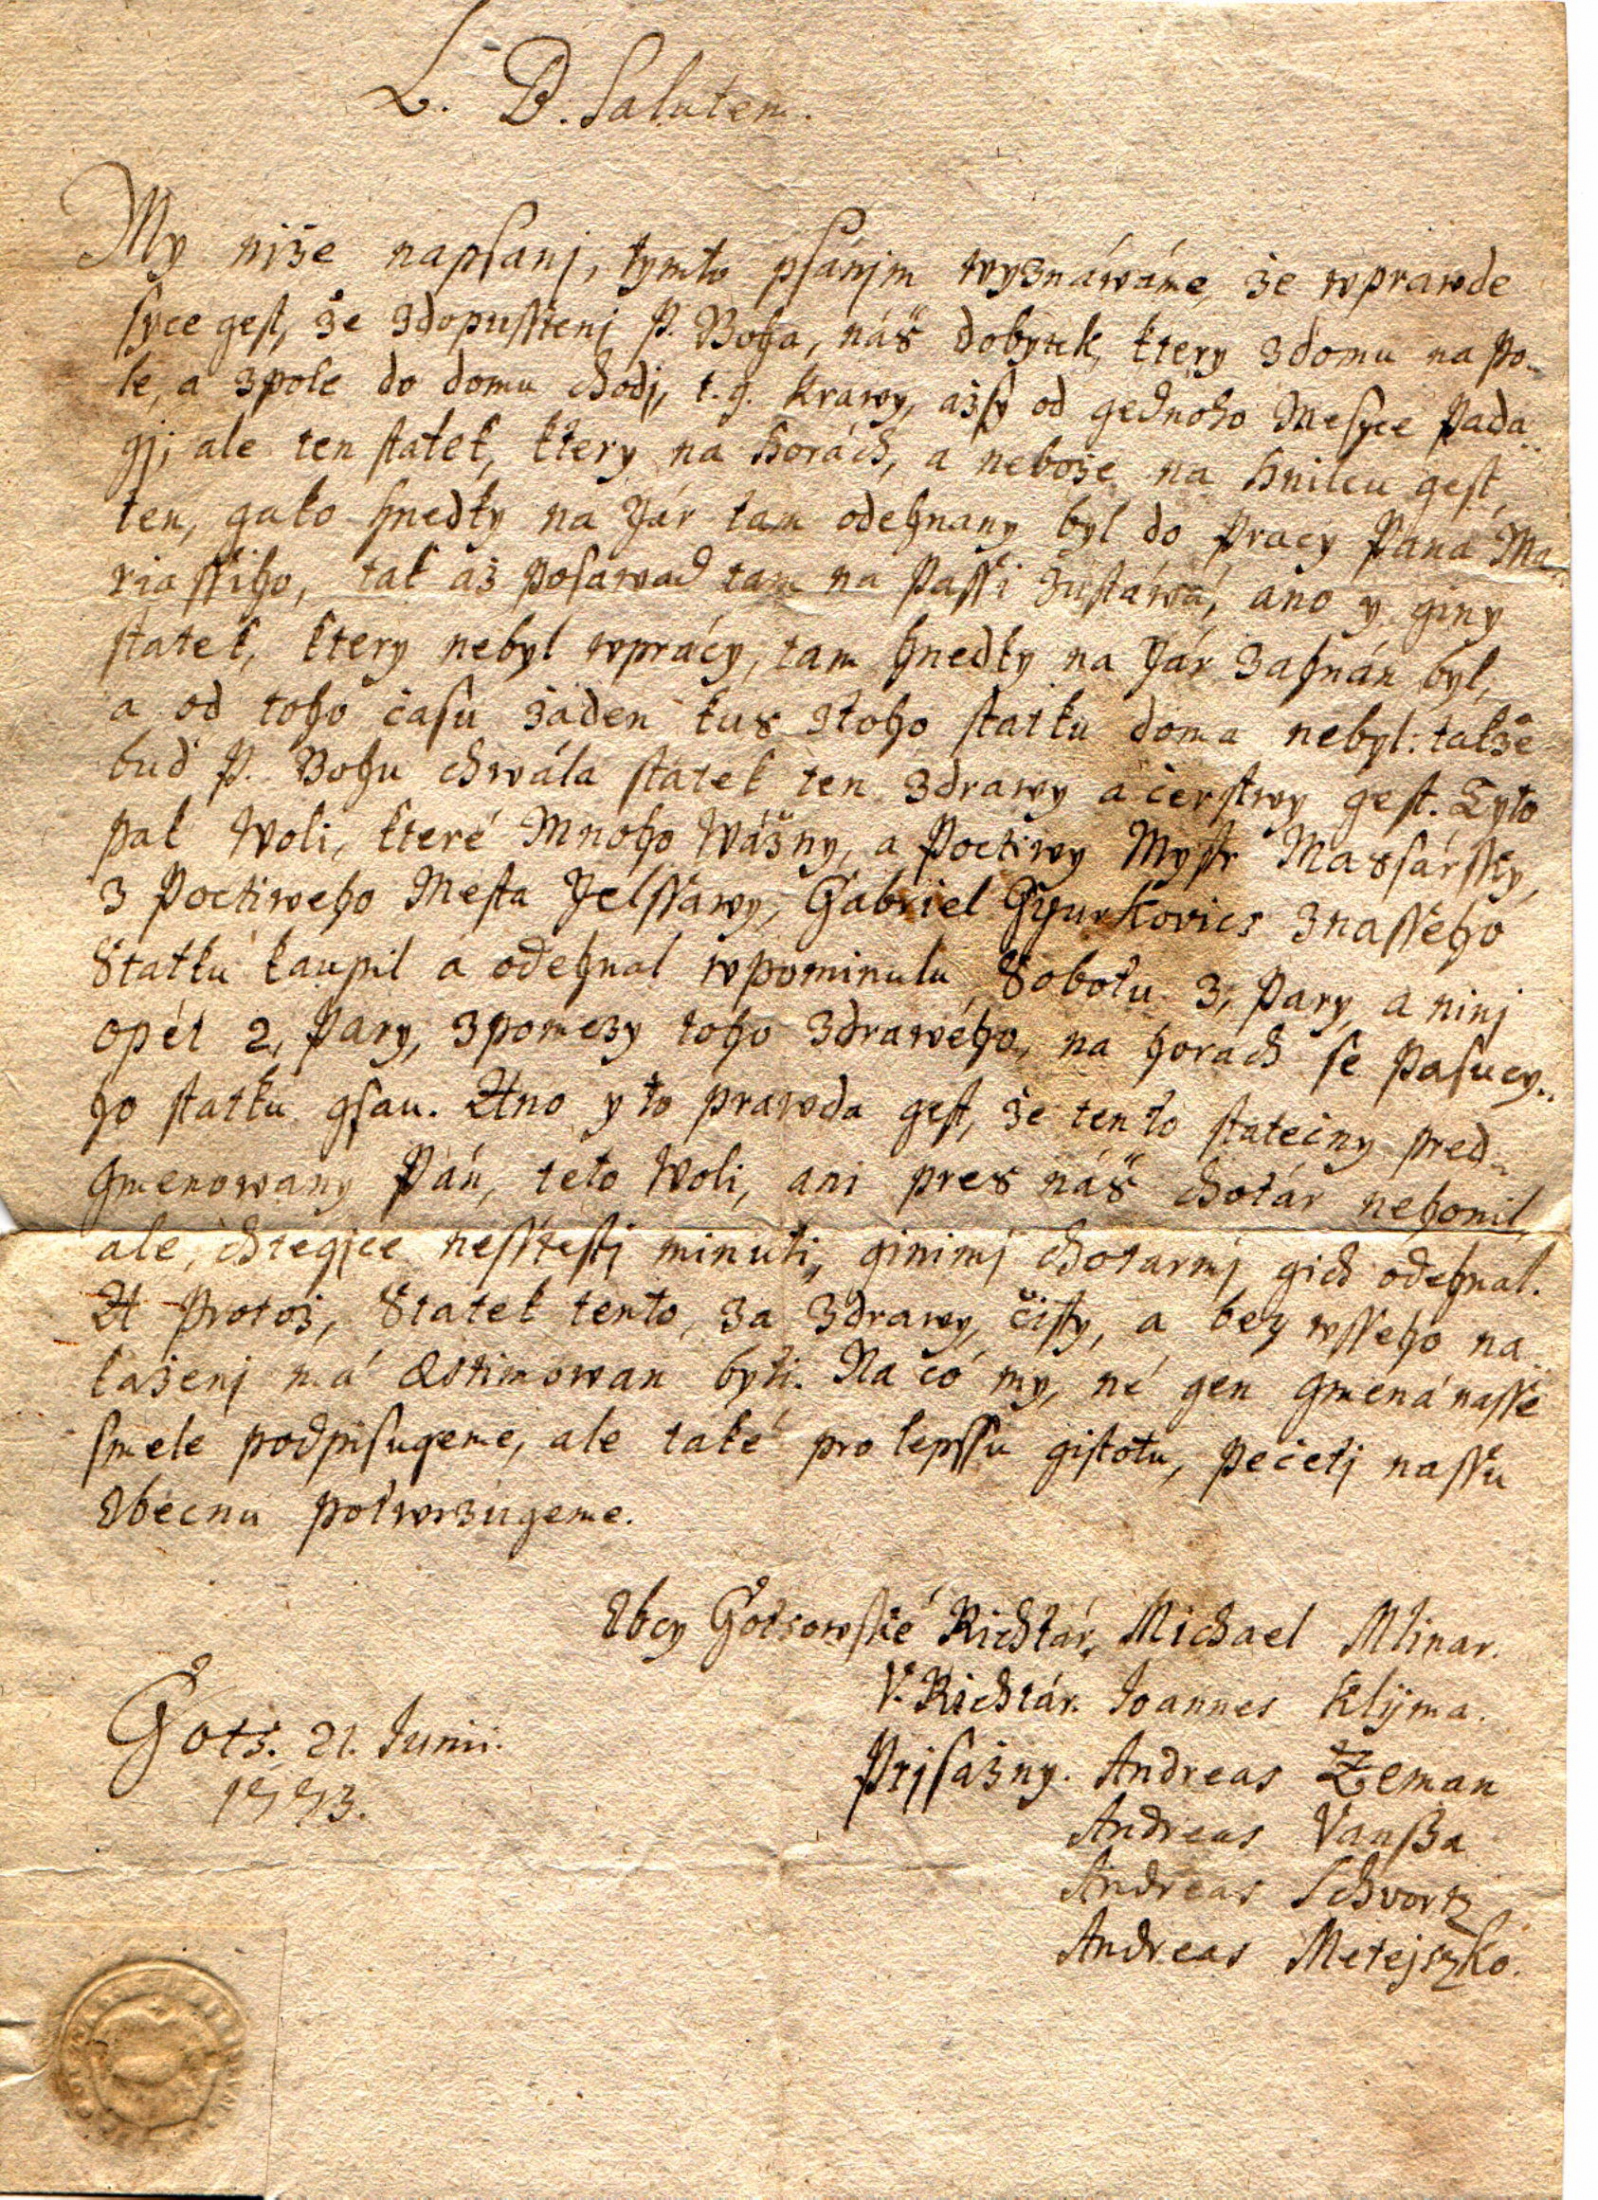 L. D. Salutem.
My njže napsanj, tymto psánjm wyznáwáme, že wprawde
syce gest, že zdopusstenj P. Boha, náš dobytek, ktery zdomu na po-
le, a zpole do domu chodj, t. g. krawy, ažsy od gednoho Mesyce pada-
gj; ale ten statek, ktery na horách, a nebože na hnilcu gest,
ten, gako hnedky na Jár tam odehnany byl do pracy Pana Ma-
riassiho, tak až posawad tam na passi zustáwá, ano y giny
statek, ktery nebyl wprácy, tam hnedky na Jár zahnán byl,
a od toho času žáden kus ztoho statku doma nebyl: takže
bud P. Bohu chwála statek ten zdrawy a čerstwy gest. Tyto
pak Woli, které Mnoho Wážny, a Poctiwy Mystr Massársky,
z Poctiweho Mesta Jelssawy, Gabriel Gyurkovics znasseho
Statku kaupil a odehnal wpominulu Sobotu 3, Pary, a ninj
opét 2, Pary, zpomezy toho zdrawého, na horach se pasucy-
ho statku gsau. Ano y to prawda gest, že tento statečny pred-
gmenowany Pán, teto Woli, ani pres náš chotár nehonil,
ale, chtegjce nesstestj minuti, ginimj chotarmj gich odehnal.
A protož, Statek tento, za zdrawy, čisty, a bez wsseho na-
kaženj má æstimowan byti. Na čo my, né gen gmená nasse
smele podpisugeme, ale také pro lepssu gistotu, pečetj nassu
Obecnu potwrzugeme.
Obcy Gotsowské Richtár, Michael Mlinar.
V. Richtár. Joannes Klijma.
Gots. 21. Junii.
1773.
Prjsažny. Andreas Zeman
Andreas Vansza
Andreas Schvortz
Andreas Metejszko.